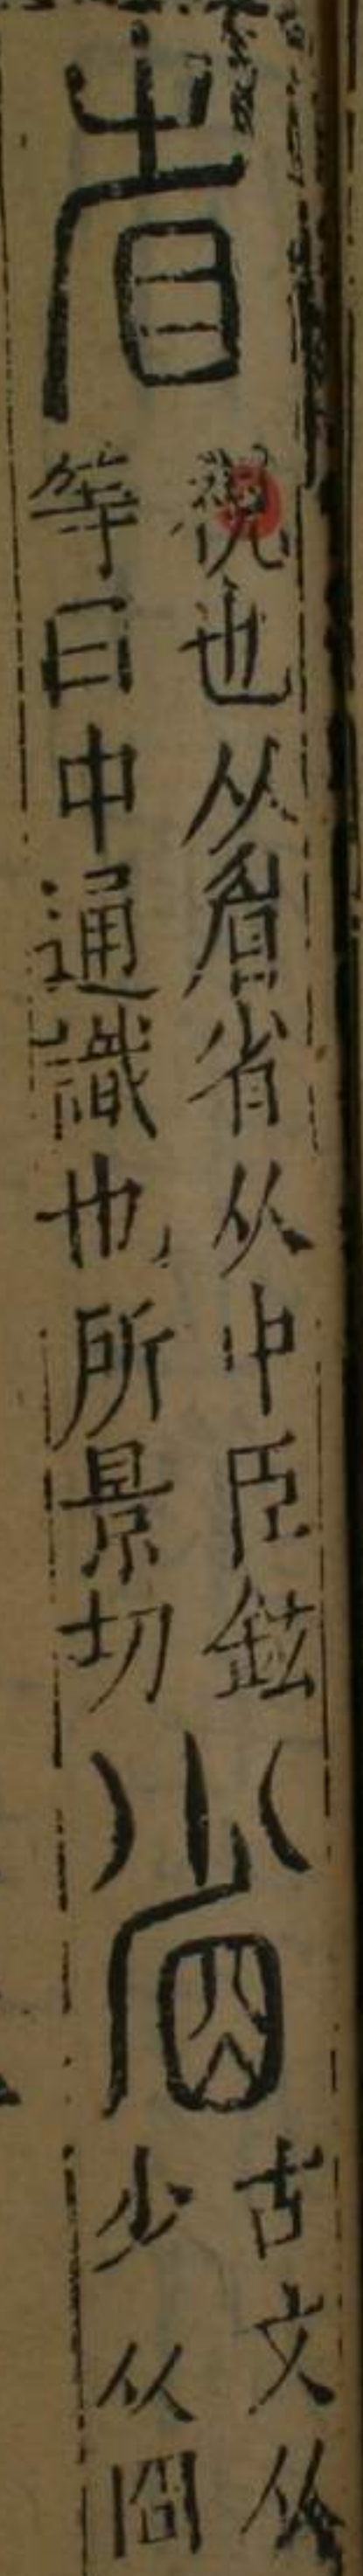 省
視也从眉省从中臣鉉
等曰中通識也所景切
𡮞
古文从
少从囧